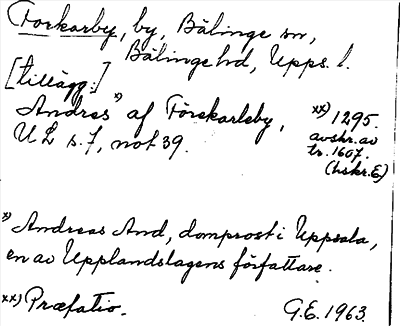 Forkarby, by, Bälinge sn,
Bälinge hd, Upps. l.
[tillägg:]
Andres x) af Förskarleby,
UL s. 7, not 39.
xx) 1295.
avskr. av
tr. 1607.
(hskr. E)
x) Andreas And, domprost i Uppsala,
en av Upplandslagens författare.
xx) Præfatio.
G.E. 1963.